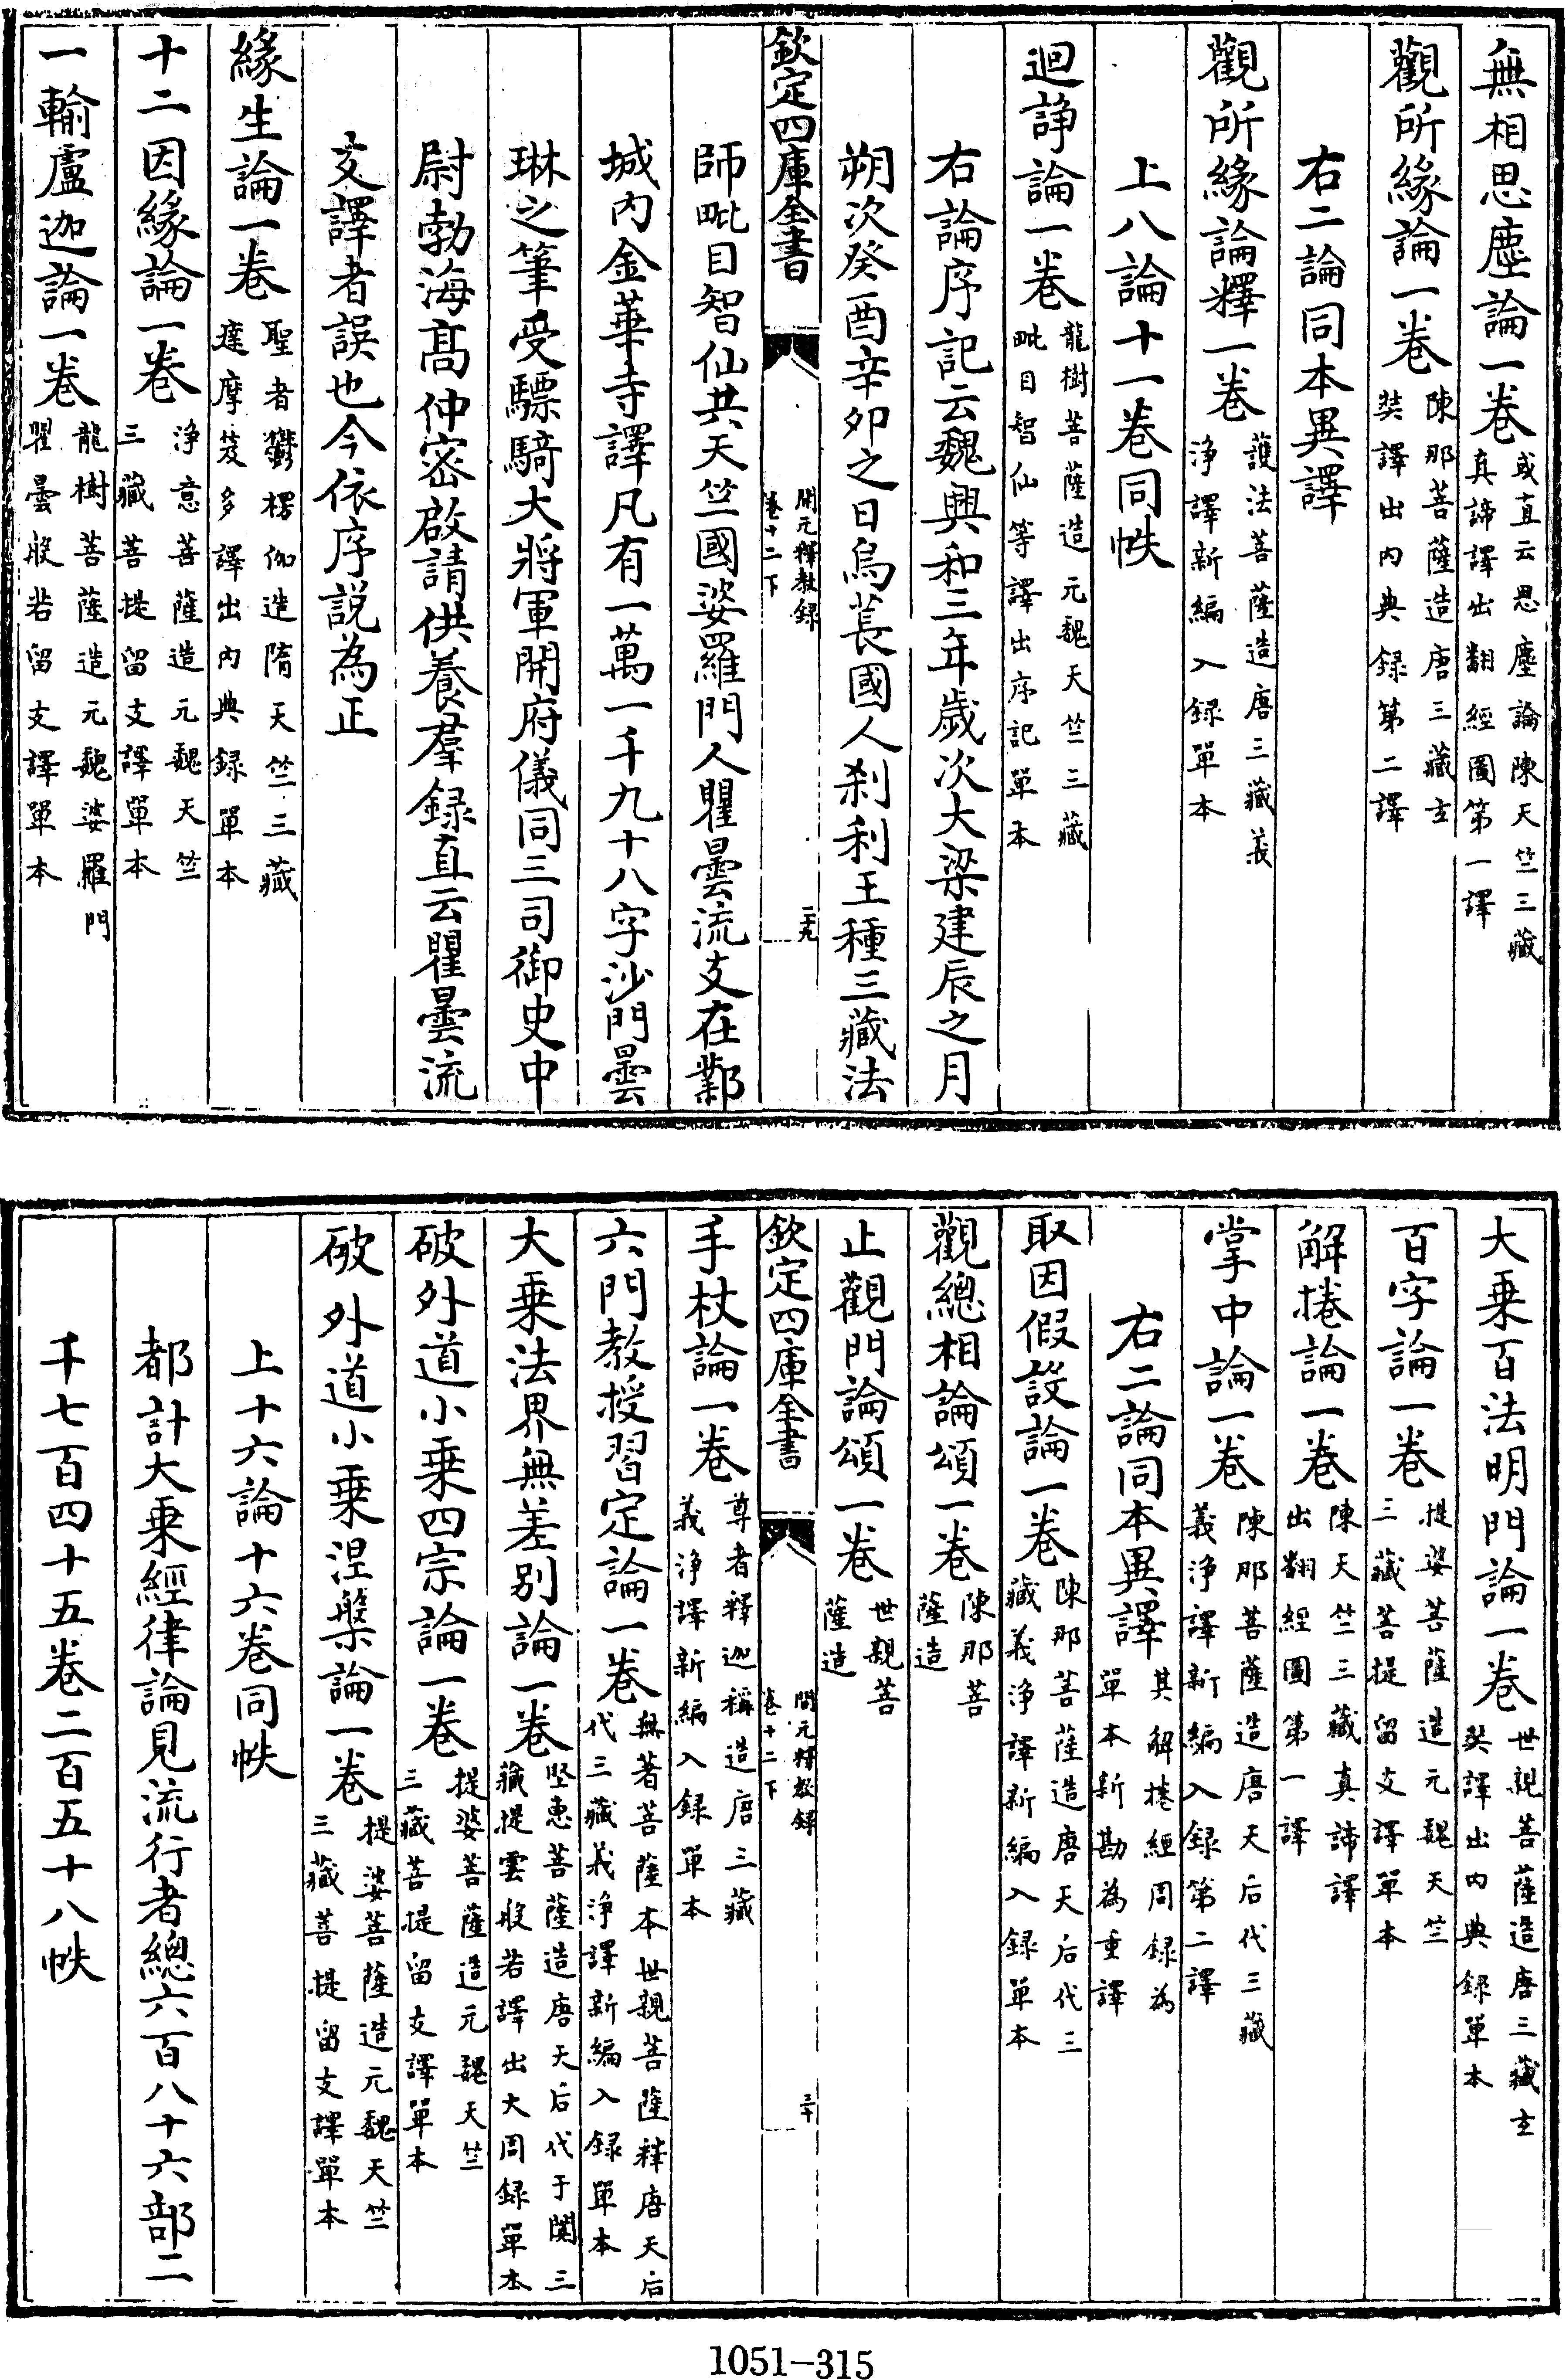 無相思塵論一卷或直云思塵論陳天竺三藏真諦譯出翻經圖第一譯
觀所緣論一卷陳那菩薩造唐三藏玄奘譯出内典録第二譯
右二論同本異譯
觀所緣論釋一卷護法菩薩造唐三藏義浄譯新編入録單本
上八論十一卷同帙
迴諍論一卷龍樹菩薩造元魏天竺三藏毗目智仙等譯出序記單本
右論序記云魏興和三年歳次大梁建辰之月
朔次癸酉辛卯之日烏萇國人刹利王種三藏法
欽定四庫全書
開元釋教録
卷十二下
二十九
師毗目智仙共天竺國婆羅門人瞿曇流支在鄴
城内金華寺譯凡有一萬一千九十八字沙門曇
琳之筆受驃騎大將軍開府儀同三司御史中
尉勃海髙仲宻啟請供養羣録直云瞿曇流
支譯者誤也今依序説為正
緣生論一卷聖者鬱楞伽造隋天竺三藏達摩笈多譯出内典録單本
十二因緣論一卷浄意菩薩造元魏天竺三藏菩提留支譯單本
一輸盧迦論一卷龍樹菩薩造元魏婆羅門瞿曇般若留支譯單本
大乗百法明門論一卷世親菩薩造唐三藏玄奘譯出内典録單本
百字論一卷提婆菩薩造元魏天竺三藏菩提留支譯單本
解捲論一卷陳天竺三藏真諦譯出翻經圖第一譯
掌中論一卷陳那菩薩造唐天后代三藏義浄譯新編入録第二譯
右二論同本異譯其解捲經周録為單本新勘為重譯
取因假設論一卷陳那菩薩造唐天后代三藏義浄譯新編入録單本
觀總相論頌一卷陳那菩薩造
止觀門論頌一卷世親菩薩造
欽定四庫全書
開元釋教録
卷十二下
三十
手杖論一卷尊者釋迦稱造唐三藏義浄譯新編入録單本
六門教授習定論一卷無著菩薩本世親菩薩釋唐天后代三藏義浄譯新編入録單本
大乗法界無差别論一卷堅惠菩薩造唐天后代于闐三藏提雲般若譯出大周録單本
破外道小乗四宗論一卷提婆菩薩造元魏天竺三藏菩提留支譯單本
破外道小乗涅槃論一卷提婆菩薩造元魏天竺三藏菩提留支譯單本
上十六論十六卷同帙
都計大乗經律論見流行者總六百八十六部二
千七百四十五卷二百五十八帙
1051-315